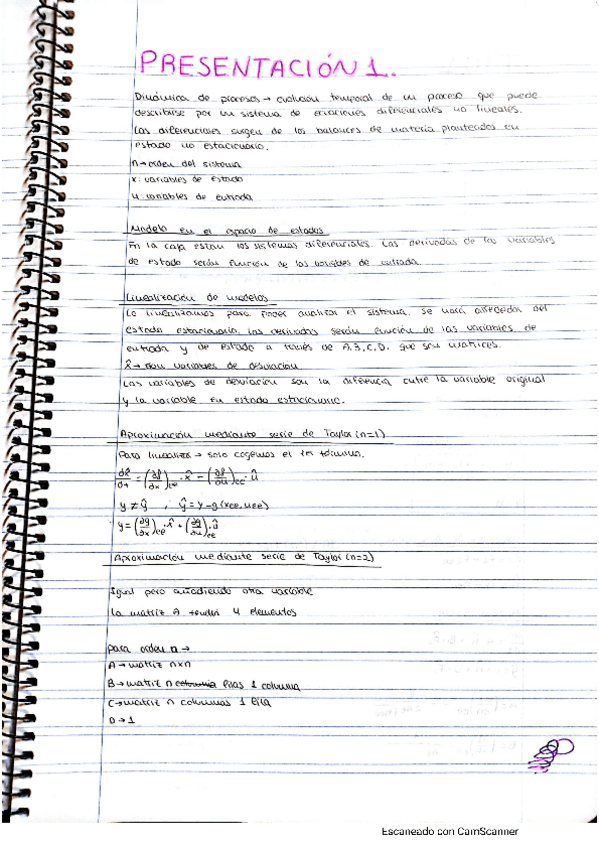 PRESENTACIÓN 1.
Dinámica de procesos → evolución temporal de un proceso que puede
describirse por un sistema de ecuaciones diferenciales no lineales.
Las diferenciales surgen de los balances de materia planteados en
estado no estacionario.
n → orden del sistema
x: variables de estado
u: variables de entrada
Modelo en el espacio de estados
En la caja están los sistemas diferenciales. Las derivadas de las variables
de estado serán función de las variables de entrada.
Linealización de modelos
Lo linealizamos para poder analizar el sistema. Se hará alrededor del
estado estacionario. Las derivadas serán función de las variables de
entrada y de estado a través de A,B,C,D. que son matrices.
x̂ → son variables de desviación
Las variables de desviación son la diferencia entre la variable original
y la variable en estado estacionario.
Aproximación mediante serie de Taylor (n=1)
Para linealizar → solo cogemos el 1er término.
dx̂/dt = (∂f/∂x)ee · x̂ + (∂f/∂u)ee · û
y ≠ ŷ , ŷ = y - g(xee, uee)
y = (∂g/∂x)ee · x̂ + (∂g/∂u)ee · û
Aproximación mediante serie de Taylor (n=2)
Igual pero añadiendo otra variable
La matriz A tendrá 4 elementos
Para orden n →
A → matriz nxn
B → matriz n columna filas 1 columna
C → matriz n columnas 1 fila
D → 1
Escaneado con CamScanner